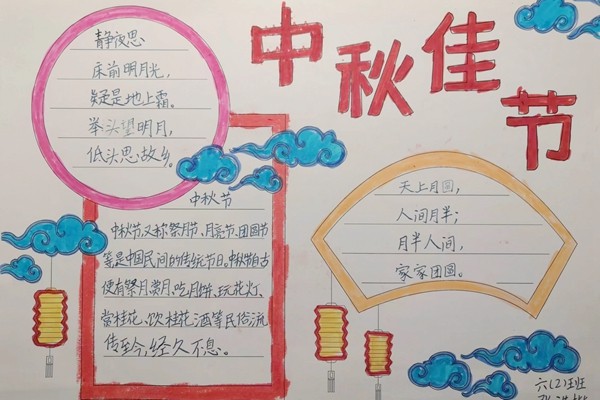 中秋佳节
静夜思
床前明月光,
疑是地上霜。
举头望明月,
低头思故乡。
中秋节
中秋节,又称祭月节、月亮节、团圆节
等是中国民间的传统节日。中秋节自古
便有祭月、赏月、吃月饼、玩花灯、
赏桂花、饮桂花酒等民俗流
传至今,经久不息。
天上月圆,
人间月半;
月半人间,
家家团圆。
六(2)班